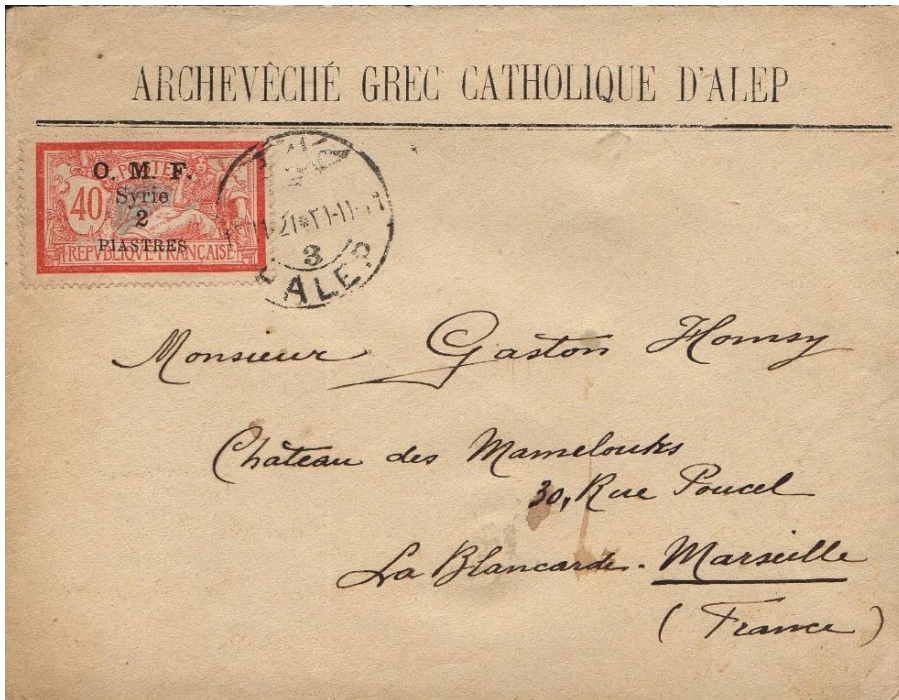 ARCHEVÊCHÉ GREC CATHOLIQUE D'ALEP
POSTES
O. M. F.
Syrie
2
PIASTRES
40
REPVBLIQUE FRANÇAISE
3
ALEP
Monsieur Gaston Homsy
Château des Mamelouks
30, Rue Poucel
La Blancarde - Marseille
(France)